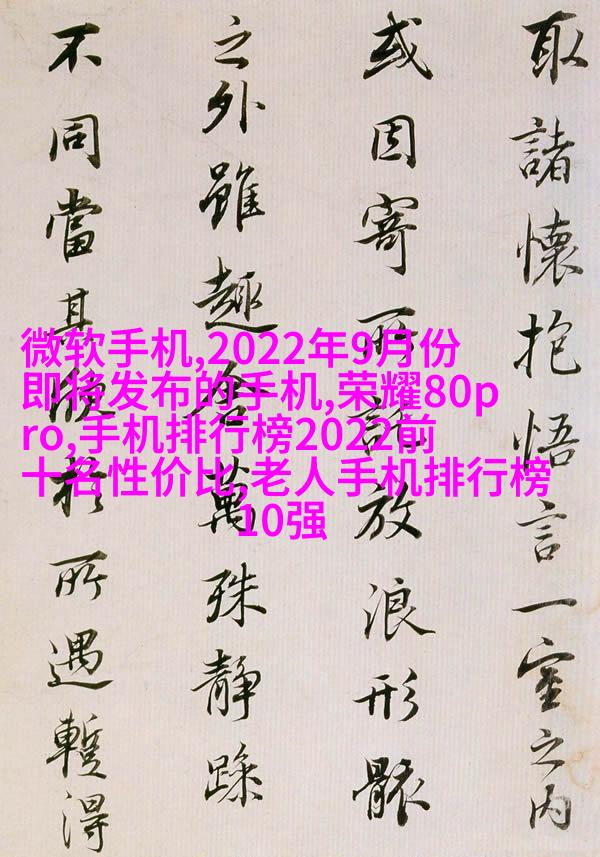 取諸懷抱悟言一室之内
或因寄所託放浪形骸
之外雖趣舍萬殊靜躁
不同當其欣於所遇暫得
微软手机,2022年9月份
即将发布的手机,荣耀80p
ro,手机排行榜2022前
十名性价比,老人手机排行榜
10强